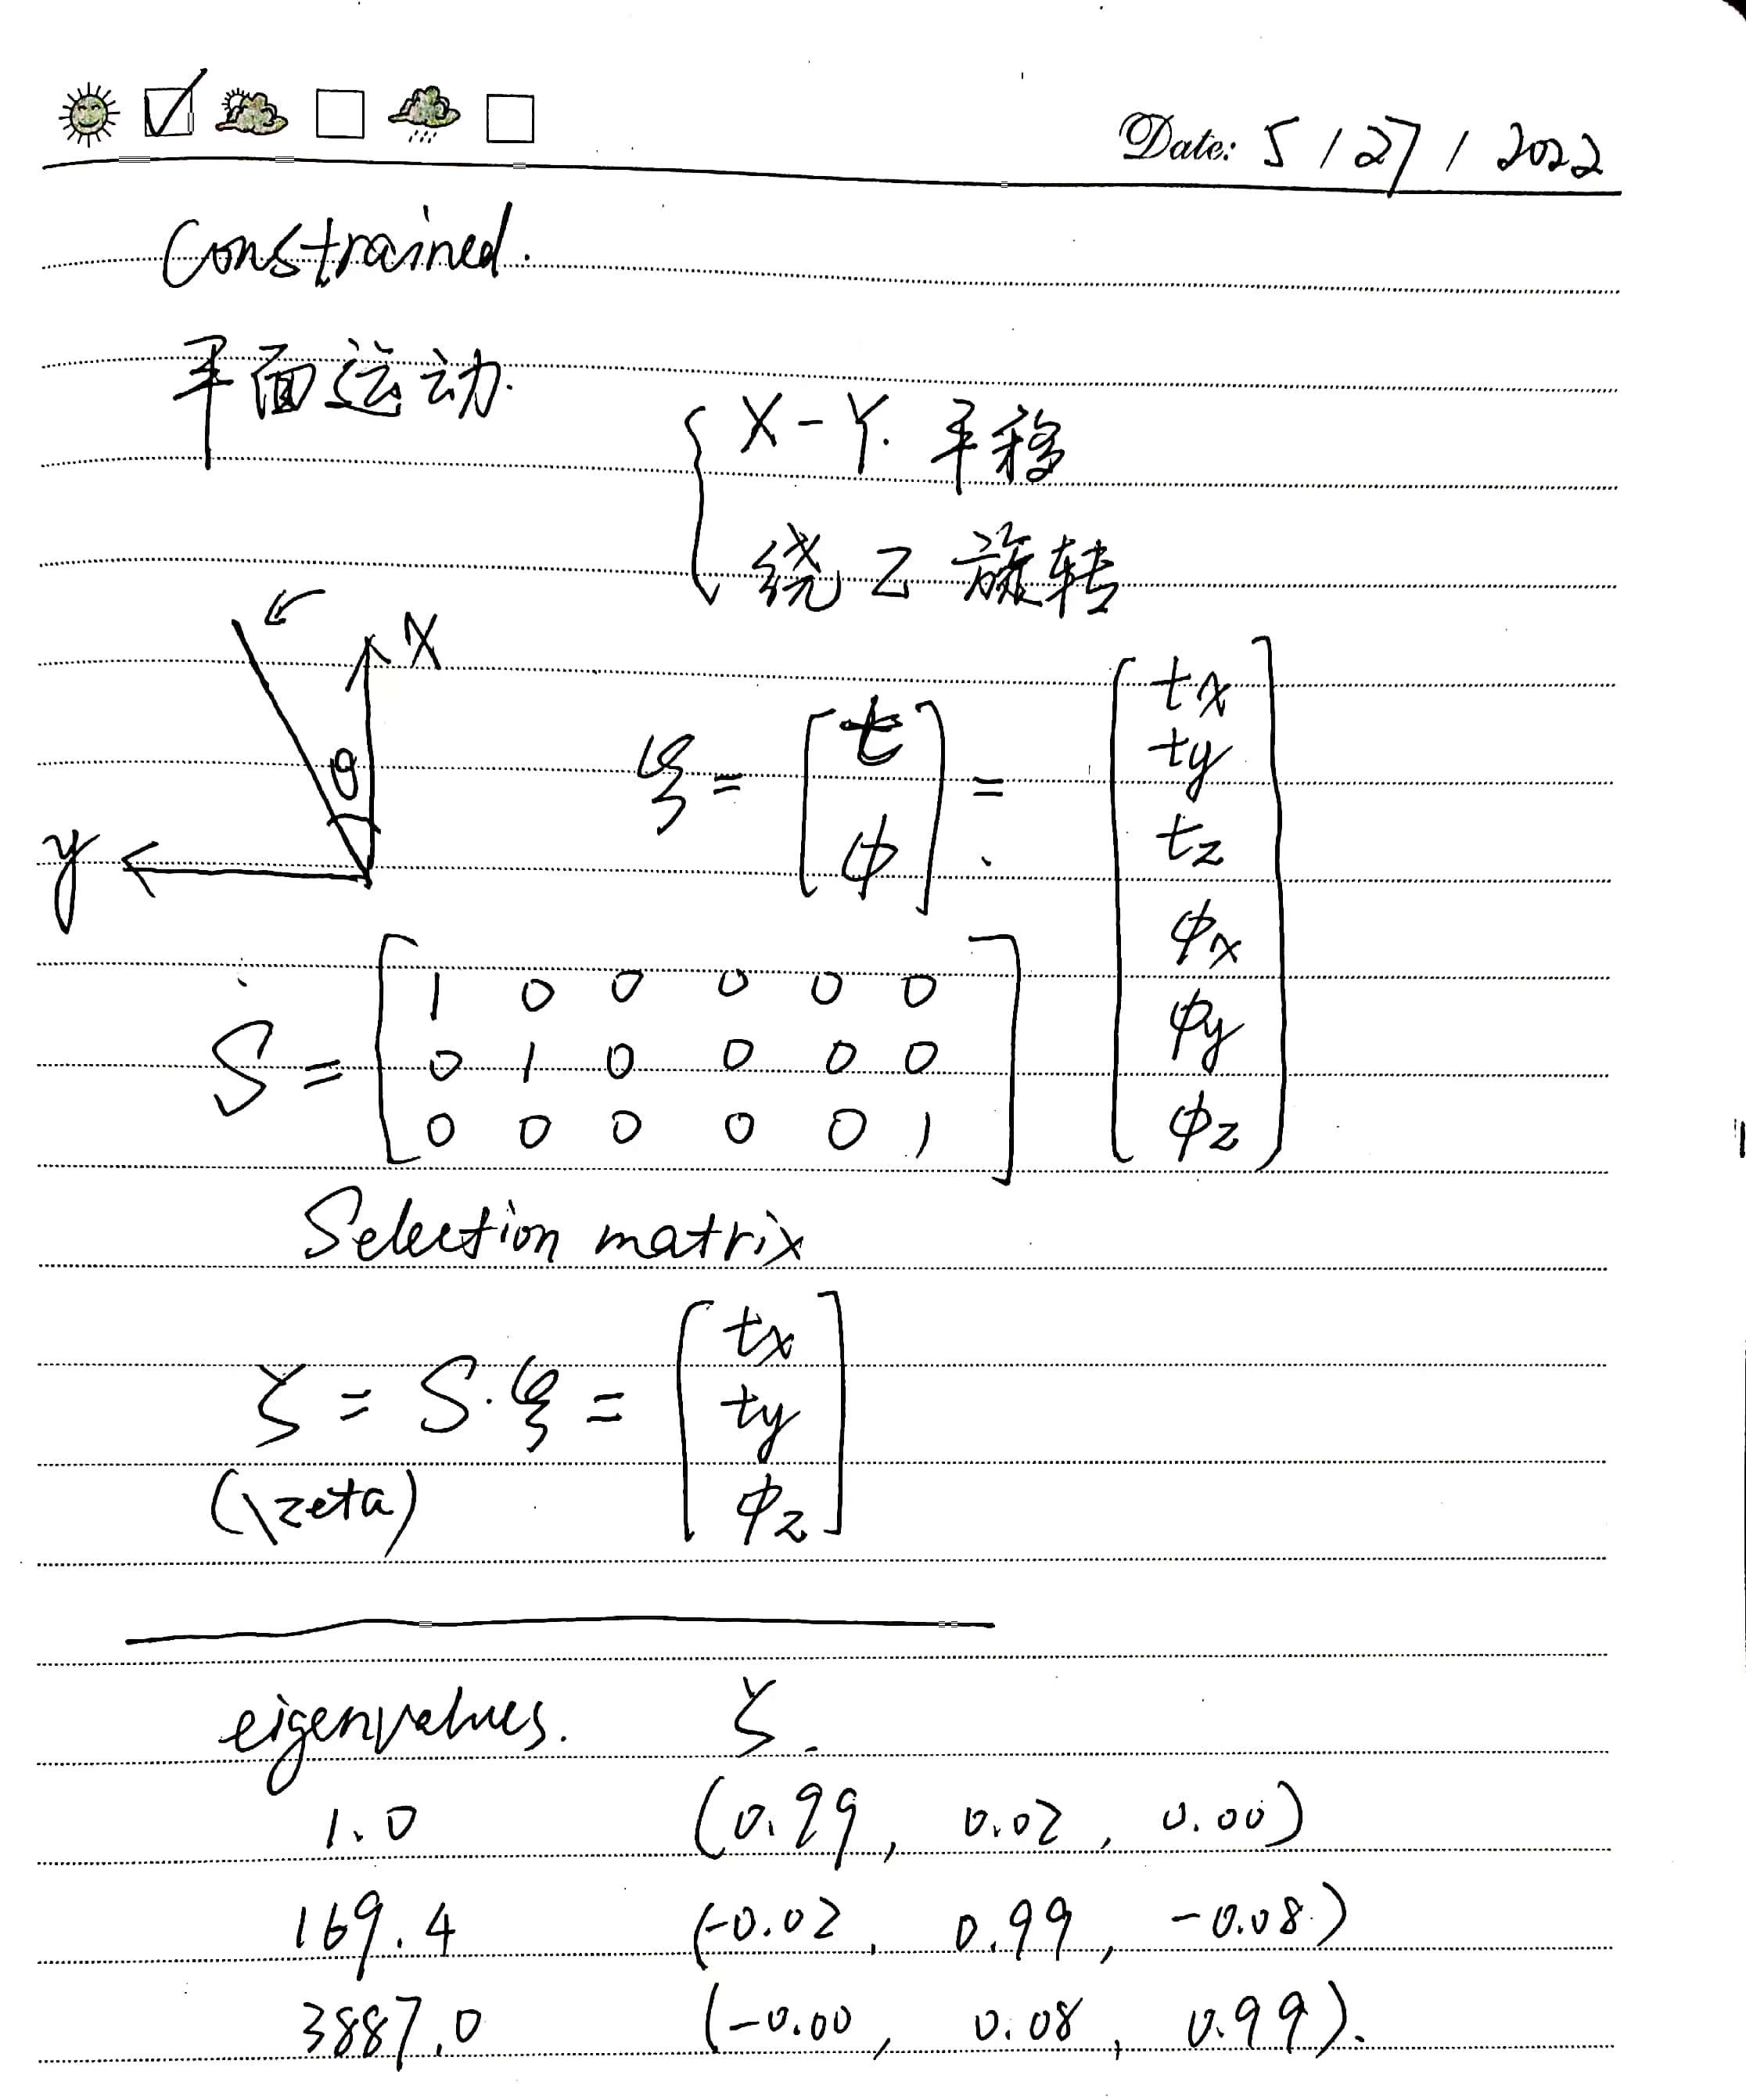 Date: 5 / 27 / 2022
Constrained.
平面运动.
X-Y. 平移
绕 Z 旋转
X
θ
y
ξ = [t ϕ] = [tx ty tz ϕx ϕy ϕz]
S = [1 0 0 0 0 0
0 1 0 0 0 0
0 0 0 0 0 1]
Selection matrix
ζ = S·ξ = [tx ty ϕz]
(\zeta)
eigenvalues. ζ.
1.0 (0.99, 0.02, 0.00)
169.4 (-0.02, 0.99, -0.08)
3887.0 (-0.00, 0.08, 0.99).